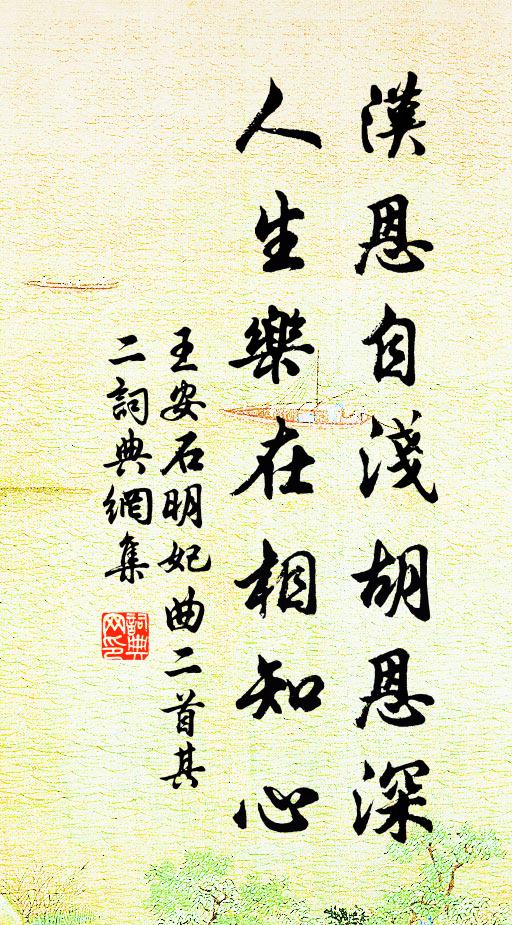 漢恩自淺胡恩深
人生樂在相知心
王安石明妃曲二首其
二詞典網集
詞典
网印